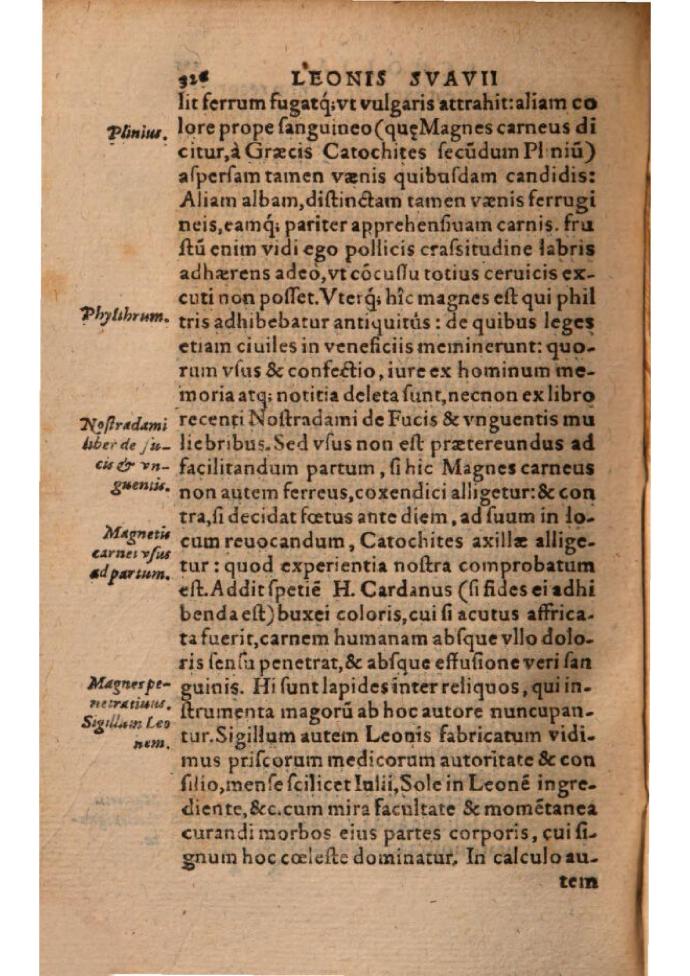 326 LEONIS SVAVII
lit ferrum fugatq́;vt vulgaris attrahit:aliam co
Plinius.
lore prope sanguineo (quęMagnes carneus di
citur,à Græcis Catochites secũdum Pl niũ)
aspersam tamen vænis quibusdam candidis:
Aliam albam,distinctam tamen vænis ferrugi
neis,eamq́; pariter apprehensiuam carnis. fru
stũ enim vidi ego pollicis crassitudine labris
adhærens adeo,vt cõcussu totius ceruicis ex-
cuti non posset.Vterq́; hîc magnes est qui phil
Phylthrum.
tris adhibebatur antiquitùs : de quibus leges
etiam ciuiles in veneficiis meminerunt: quo-
rum vsus & confectio, iure ex hominum me-
moria atq; notitia deleta sunt,necnon ex libro
Nostradami
liber de fu-
cis & vn-
guentis.
recenti Nostradami de Fucis & vnguentis mu
liebribus.Sed vsus non est prætereundus ad
facilitandum partum, si hic Magnes carneus
non autem ferreus,coxendici alligetur:& con
tra,si decidat fœtus ante diem, ad suum in lo-
Magnetis
carnei vsus
ad partum.
cum reuocandum, Catochites axillæ allige-
tur : quod experientia nostra comprobatum
est.Addit spetiẽ H. Cardanus (si fides ei adhi
benda est) buxei coloris,cui si acutus affrica-
ta fuerit,carnem humanam absque vllo dolo-
ris sensu penetrat,& absque effusione veri san
Magnes pe-
netratiuus.
Sigillum Leo
nem.
guinis. Hi sunt lapides inter reliquos, qui in-
strumenta magorũ ab hoc autore nuncupan-
tur.Sigillum autem Leonis fabricatum vidi-
mus priscorum medicorum autoritate & con
silio,mense scilicet Iulii,Sole in Leonẽ ingre-
diente,&c.cum mira facultate & momẽtanea
curandi morbos eius partes corporis, cui si-
gnum hoc cœleste dominatur. In calculo au-
tem